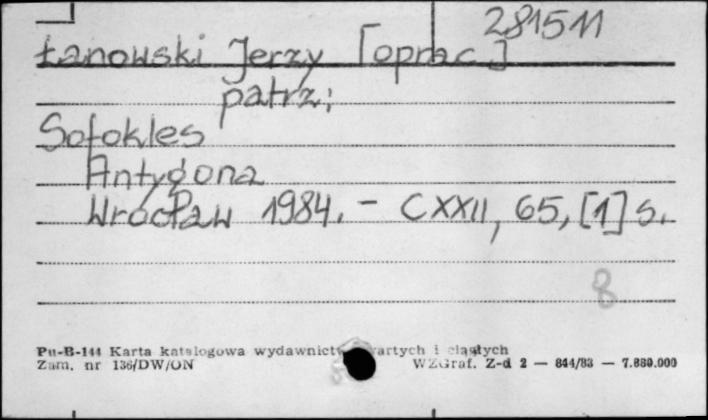 281511
Łanowski Jerzy [oprac]
patrz:
Sofokles
Antygona
Wrocław 1984. - CXXII, 65, [1] s.
8
Pu-B-144 Karta katalogowa wydawnictw zwartych i ciągłych
Zam. nr 136/DW/ON WZGraf. Z-d 2 — 844/83 — 7.880.000